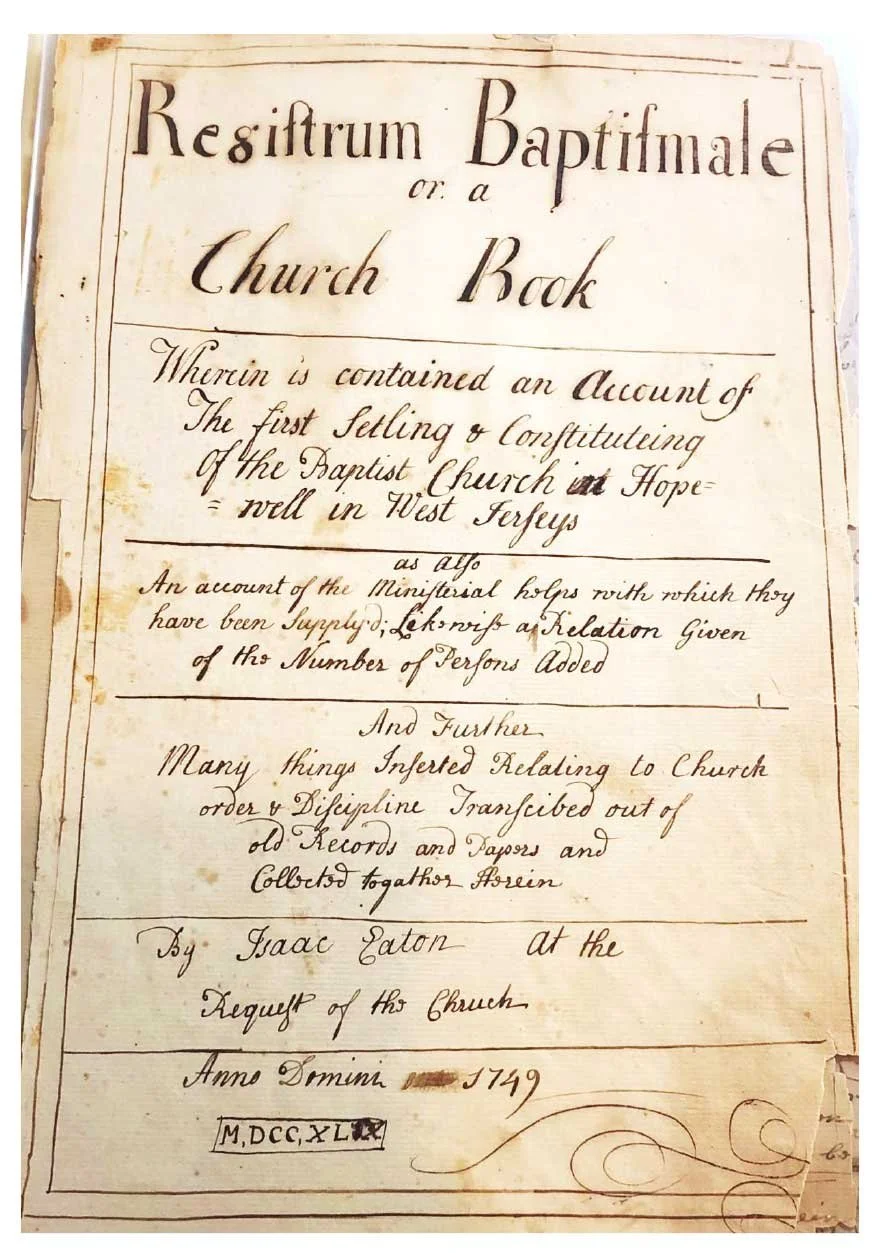 Regiſtrum Baptiſmale
or a
Church Book
Wherein is contained an Account of
The first Setling & Conſtituteing
Of the Baptist Church in Hope=
= well in West Jerſeys
as Alſo
An account of the Miniſterial helps with which they
have been Supply'd; Likewiſe a Relation Given
of the Number of Perſons Added
And Further
Many things Inſerted Relating to Church
order & Diſcipline Tranſcibed out of
old Records and Papers and
Collected togather Herein
By Isaac Eaton At the
Requeſt of the Chruch
Anno Domini 1749
M,DCC,XLIX